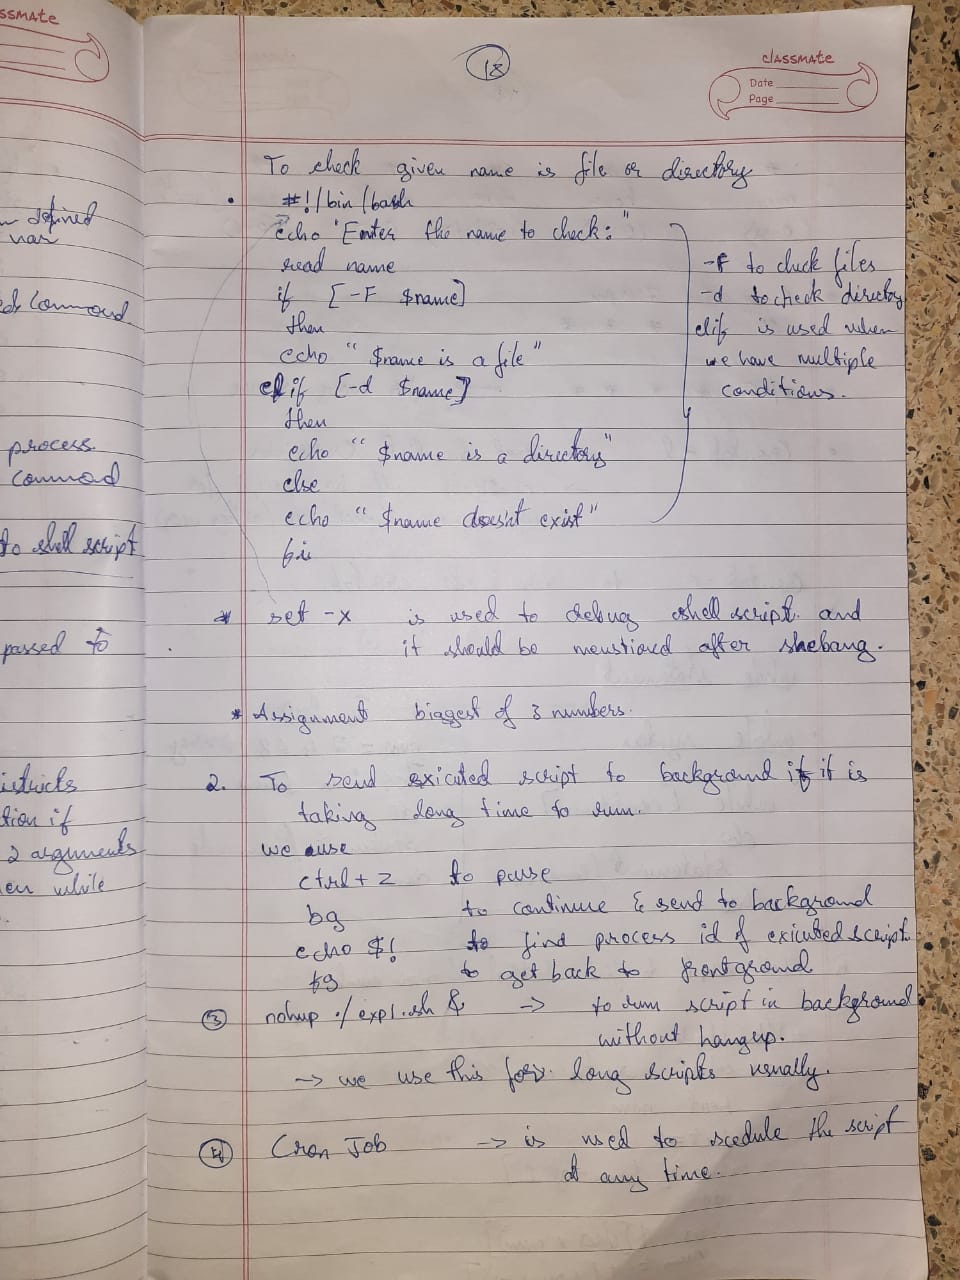 ssmate
m defined
var
ed Command
process
Command
to shell script
passed to
istricts
tion if
2 arguments
en while
18
classmate
Date
Page
To check given name is file or directory
#!/bin/bash
echo "Enter the name to check:"
read name
if [-F $name]
then
echo "$name is a file"
elif [-d $name]
then
echo "$name is a directory"
else
echo "$name doesn't exist"
fi
-F to check files
-d to check directory
elif is used when
we have multiple
conditions.
* set -x is used to debug shell script. and
it should be menstioned after shebang.
* Assignment biggest of 3 numbers.
2. To send exicuted script to background if it is
taking long time to run.
we use
ctrl + z to pause
bg to continue & send to background
echo $! to find process id of exicuted script.
fg to get back to frontground
3 nohup ./exp1.sh & -> to run script in background
without hangup.
-> we use this for long scripts usually.
4 Cron Job -> is used to scedule the script
at any time.